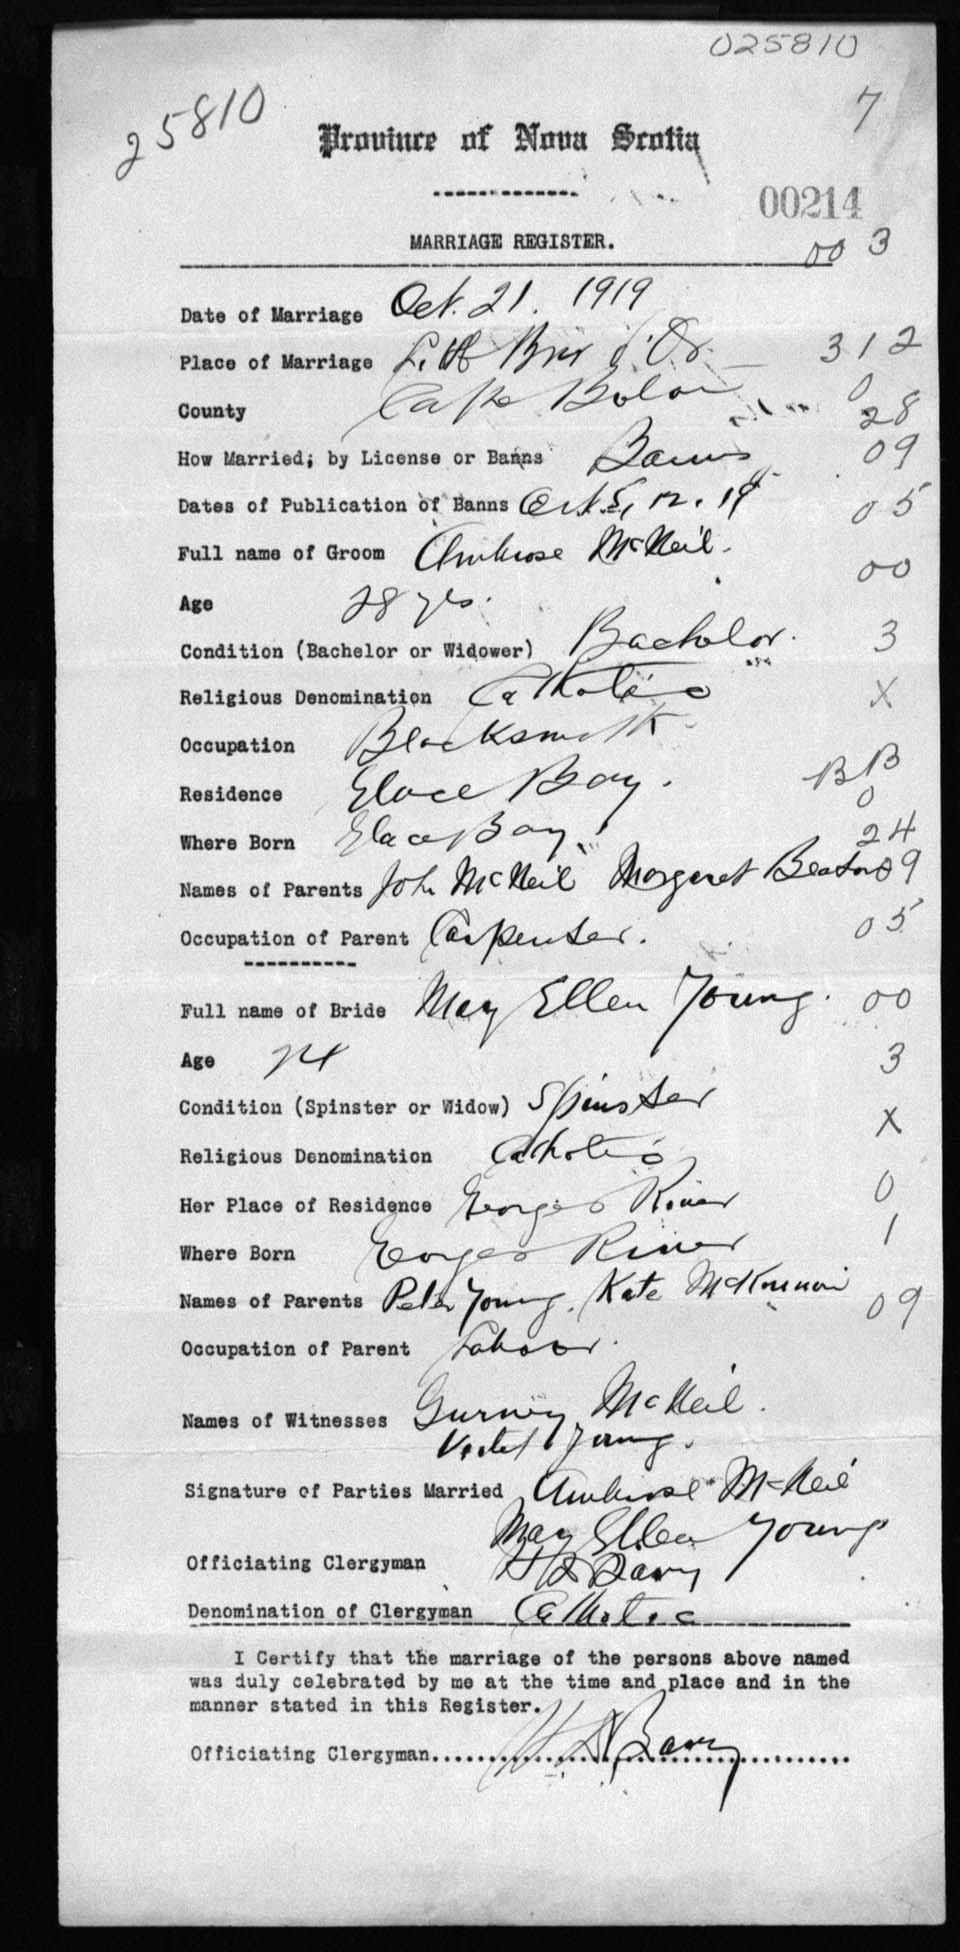 025810
25810
7
Province of Nova Scotia
00214
MARRIAGE REGISTER.
00 3
Date of Marriage Oct. 21. 1919
Place of Marriage Little Bras d'Or 312
County Cape Breton 0
28
How Married; by License or Banns Banns 09
Dates of Publication of Banns Oct. 5, 12, 19 05
Full name of Groom Ambrose McNeil.
00
Age 28 yrs.
Condition (Bachelor or Widower) Bachelor. 3
Religious Denomination Catholic X
Occupation Blacksmith
Residence Glace Bay. BB
0
Where Born Glace Bay. 24
Names of Parents John McNeil Margaret Beaton 09
Occupation of Parent Carpenter. 05
Full name of Bride May Ellen Young. 00
Age 24 3
Condition (Spinster or Widow) Spinster X
Religious Denomination Catholic
Her Place of Residence Georges River 0
Where Born Georges River 1
Names of Parents Peter Young. Kate McKinnon 09
Occupation of Parent Labour.
Names of Witnesses Gurney McNeil.
Violet Young.
Signature of Parties Married Ambrose McNeil
May Ellen Young
Officiating Clergyman Barry
Denomination of Clergyman Catholic
I Certify that the marriage of the persons above named
was duly celebrated by me at the time and place and in the
manner stated in this Register.
Officiating Clergyman Barry